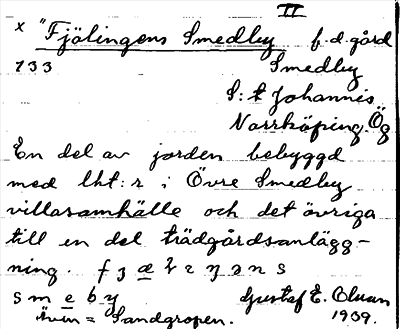 II
x "Fjälingens Smedby f.d. gård
133 Smedby
S:t Johannis
Norrköping. Ög
En del av jorden bebyggd
med lht:r i Övre Smedby
villasamhälle och det övriga
till en del trädgårdsanlägg-
ning.
s m e b y Gustaf E. Olsson
Även = Sandgropen. 1939.